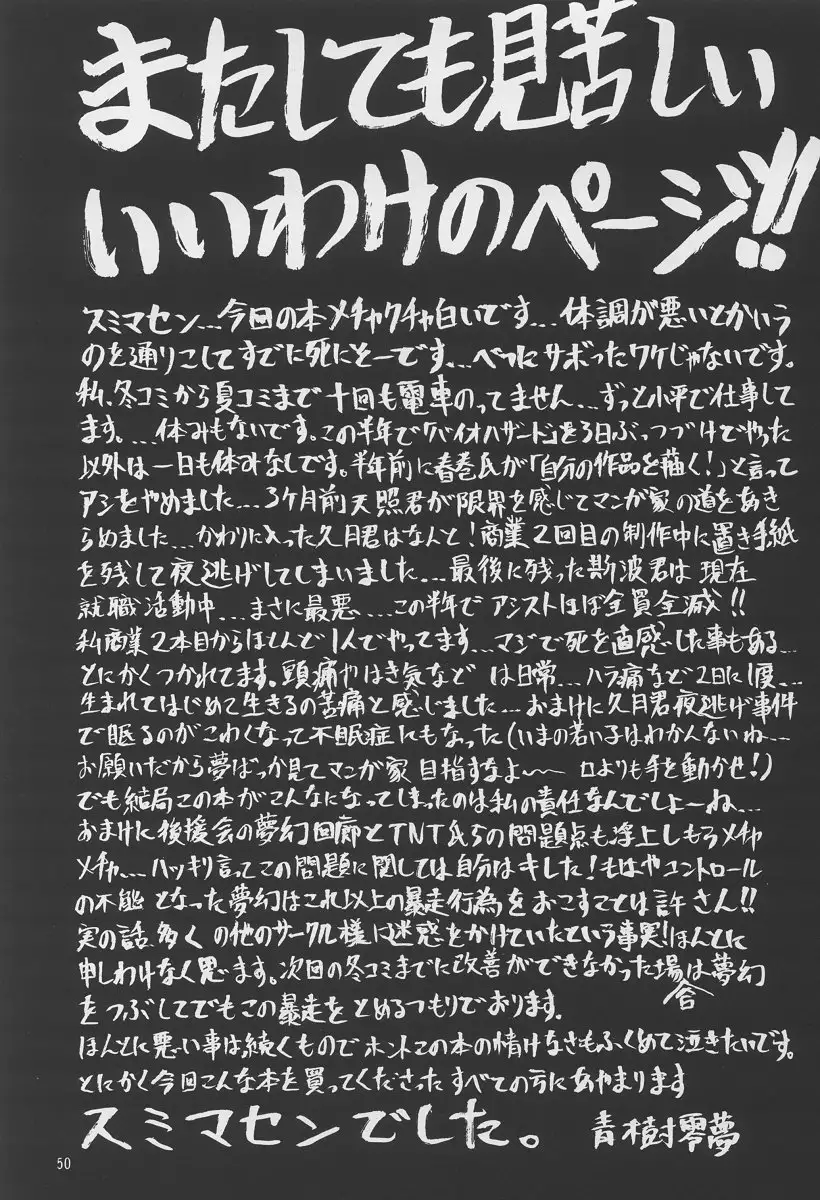 またしても見苦しい
いいわけのページ!!
スミマセン…今回の本メチャクチャ白いです…体調が悪いとかいう
のを通りこしてすでに死にそーです…べつにサボったワケじゃないです。
私、冬コミから夏コミまで十回も電車のってません…ずっと小平で仕事して
ます。…休みもないです。この半年で「バイオハザード」を3日ぶっつづけでやった
以外は一日も休みなしです。半年前に春巻氏が「自分の作品を描く!」と言って
アシをやめました…3ケ月前天照君が限界を感じてマンガ家の道をあき
らめました…かわりに入った久月君はなんと!商業2回目の制作中に置き手紙
を残して夜逃げしてしまいました…最後に残った斯波君は現在
就職活動中…まさに最悪…この半年でアシストほぼ全員全滅!!
私商業2本目からほとんど1人でやってます…マジで死を直感した事もある…
とにかくつかれてます。頭痛やはき気などは日常…ハラ痛など2日に1度…
生まれてはじめて生きるの苦痛と感じました…おまけに久月君夜逃げ事件
で眠るのがこわくなって不眠症にもなった(いまの若い子はわかんないね…
お願いだから夢ばっか見てマンガ家目指すなよ〜口よりも手を動かせ!)
でも結局この本がこんなになってしまったのは私の責任なんでしょーね…
おまけに後援会の夢幻回廊とTNT氏らの問題点も浮上しもうメチャ
メチャ…ハッキリ言ってこの問題に関しては自分はキレた!もはやコントロール
の不能となった夢幻はこれ以上の暴走行為をおこすことは許さん!!
実の話、多くの他のサークル様に迷惑をかけていたという事実!ほんとに
申しわけなく思います。次回の冬コミまでに改善ができなかった場合は夢幻
をつぶしてでもこの暴走をとめるつもりでおります。
ほんとに悪い事は続くものでホントこの本の情けなさもふくめて泣きたいです。
とにかく今回こんな本を買ってくださったすべての方にあやまります
スミマセンでした。 青樹零夢
50